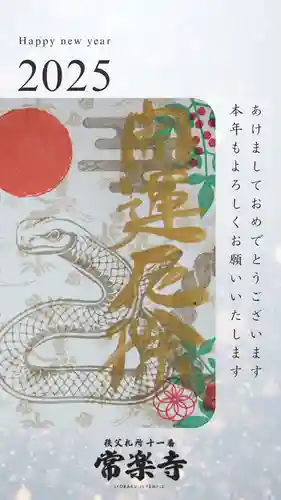 Happy new year
2025
あけましておめでとうございます
本年もよろしくお願いいたします
開運尼僧
秩父札所十一番
常楽寺
JYORAKU-JI TEMPLE